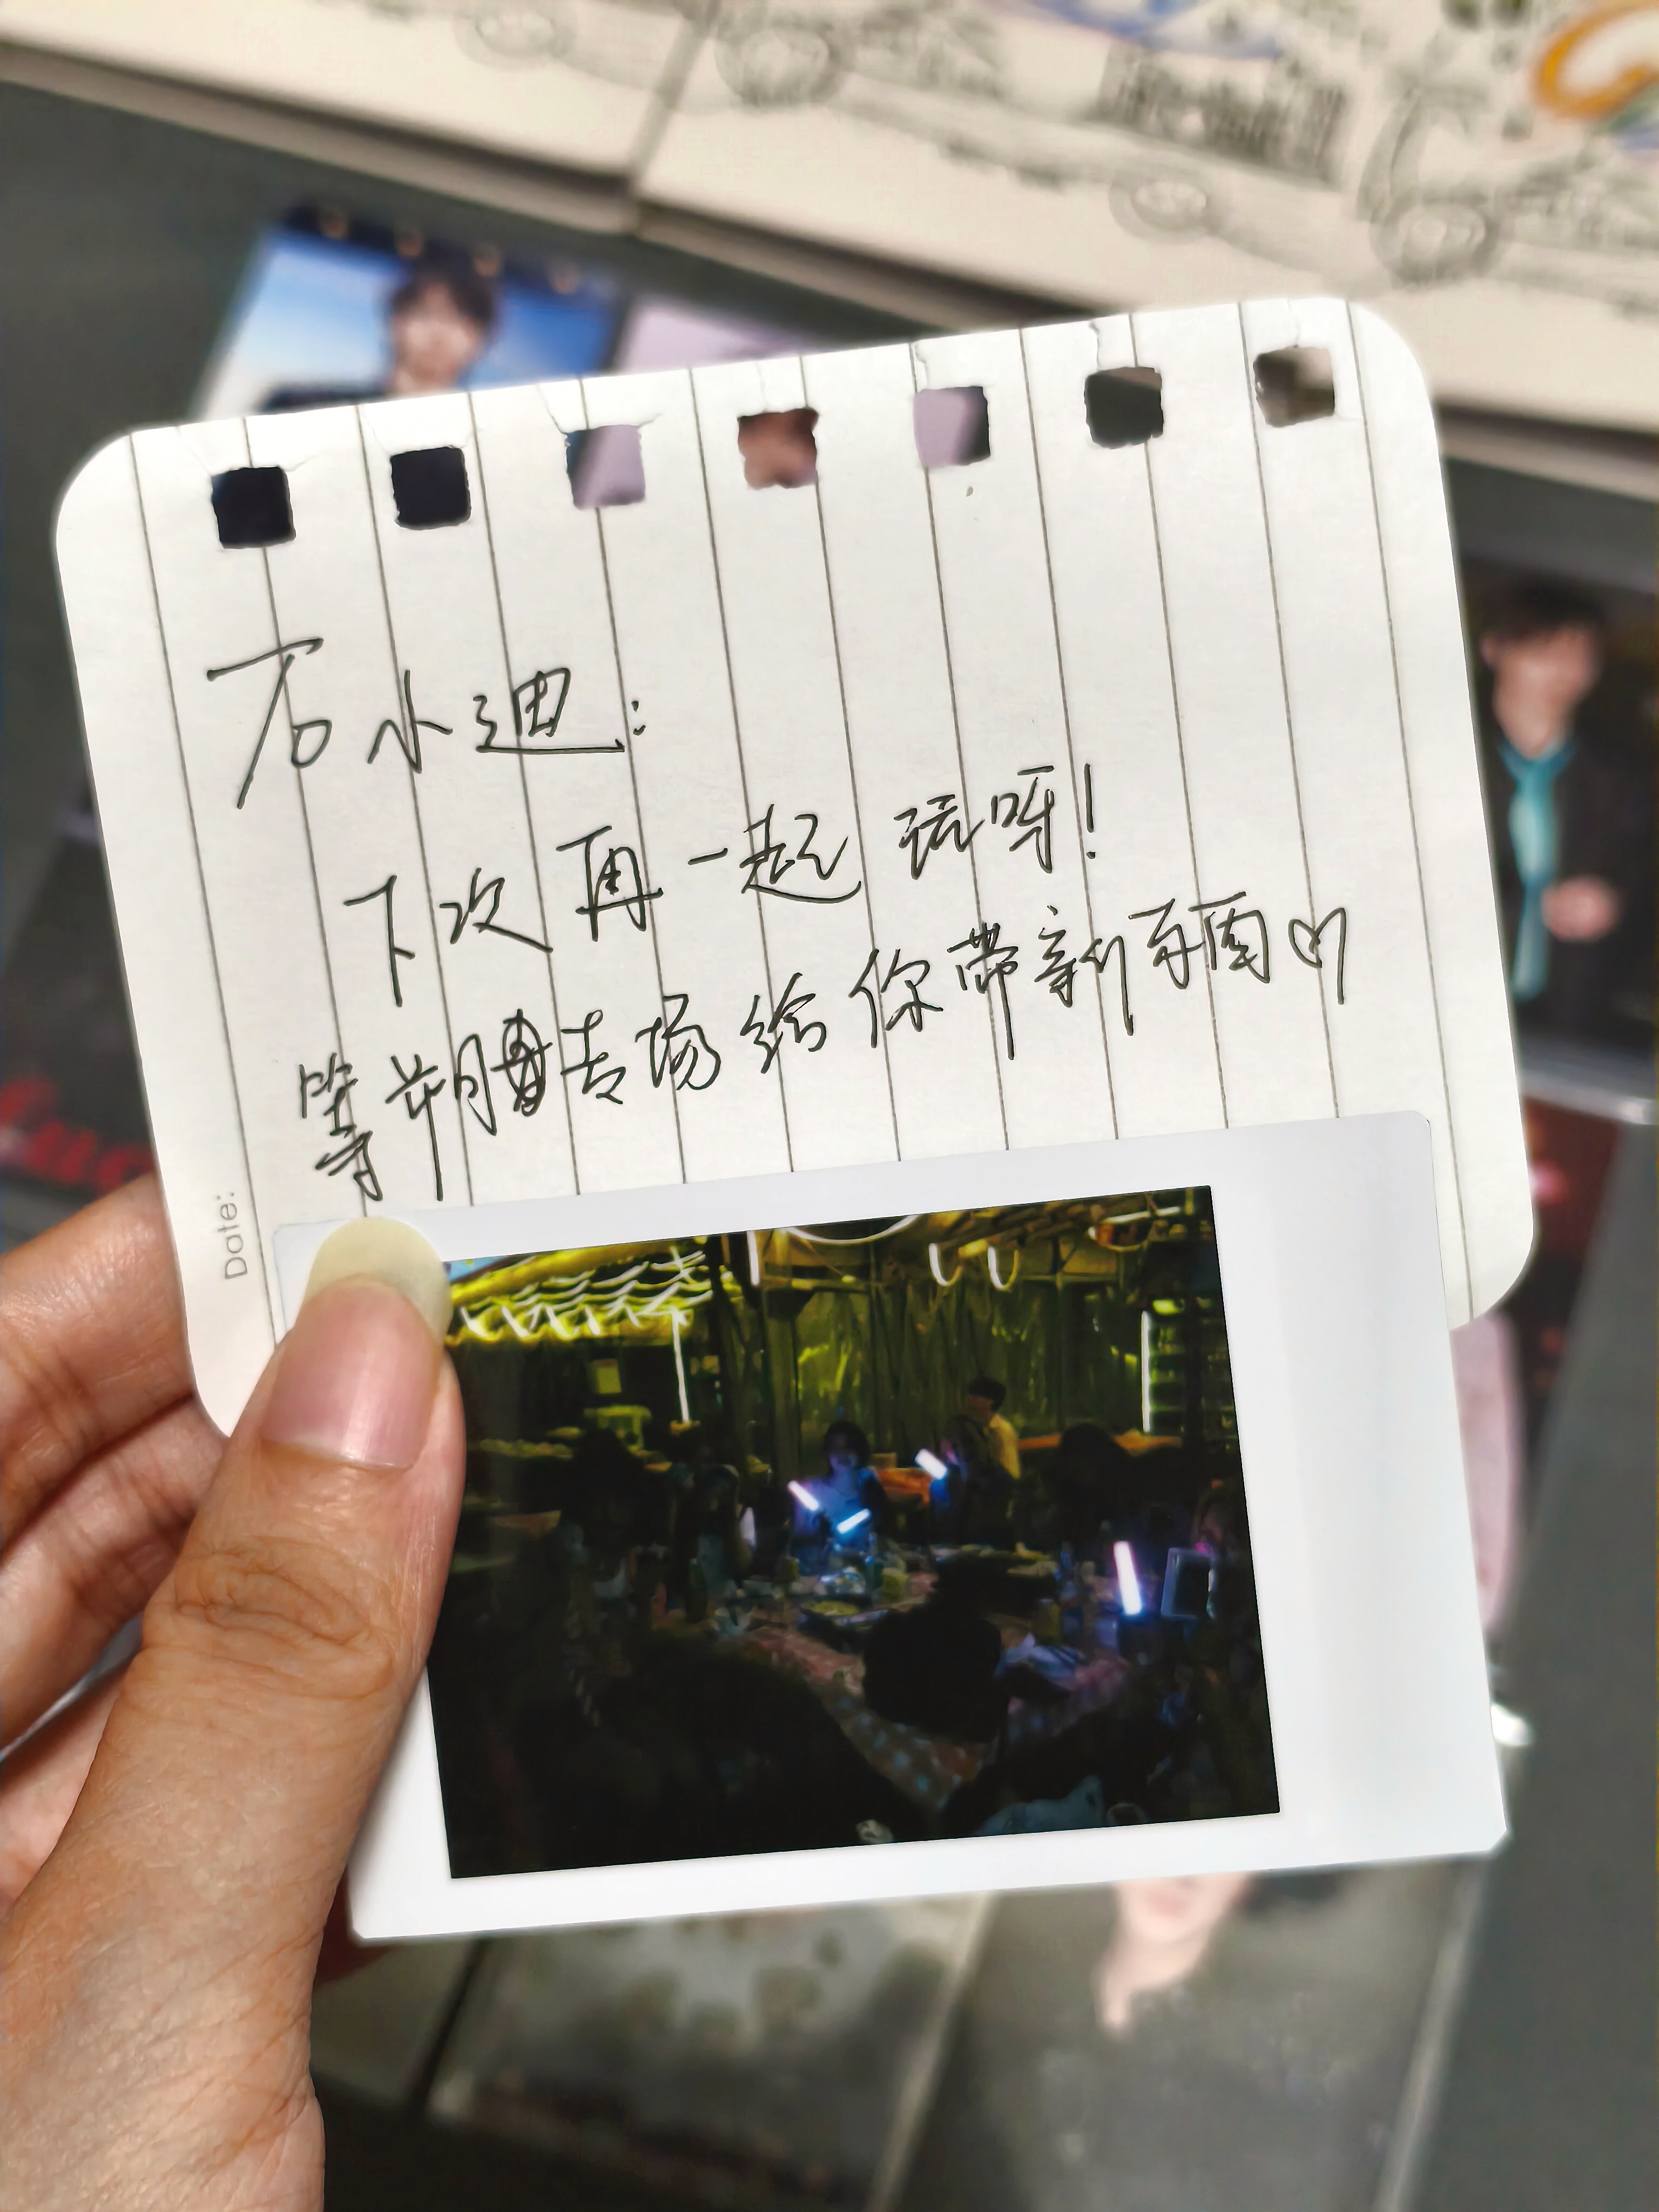 石小迪:
下次再一起玩呀!
等朔专场给你带新♡
Date: